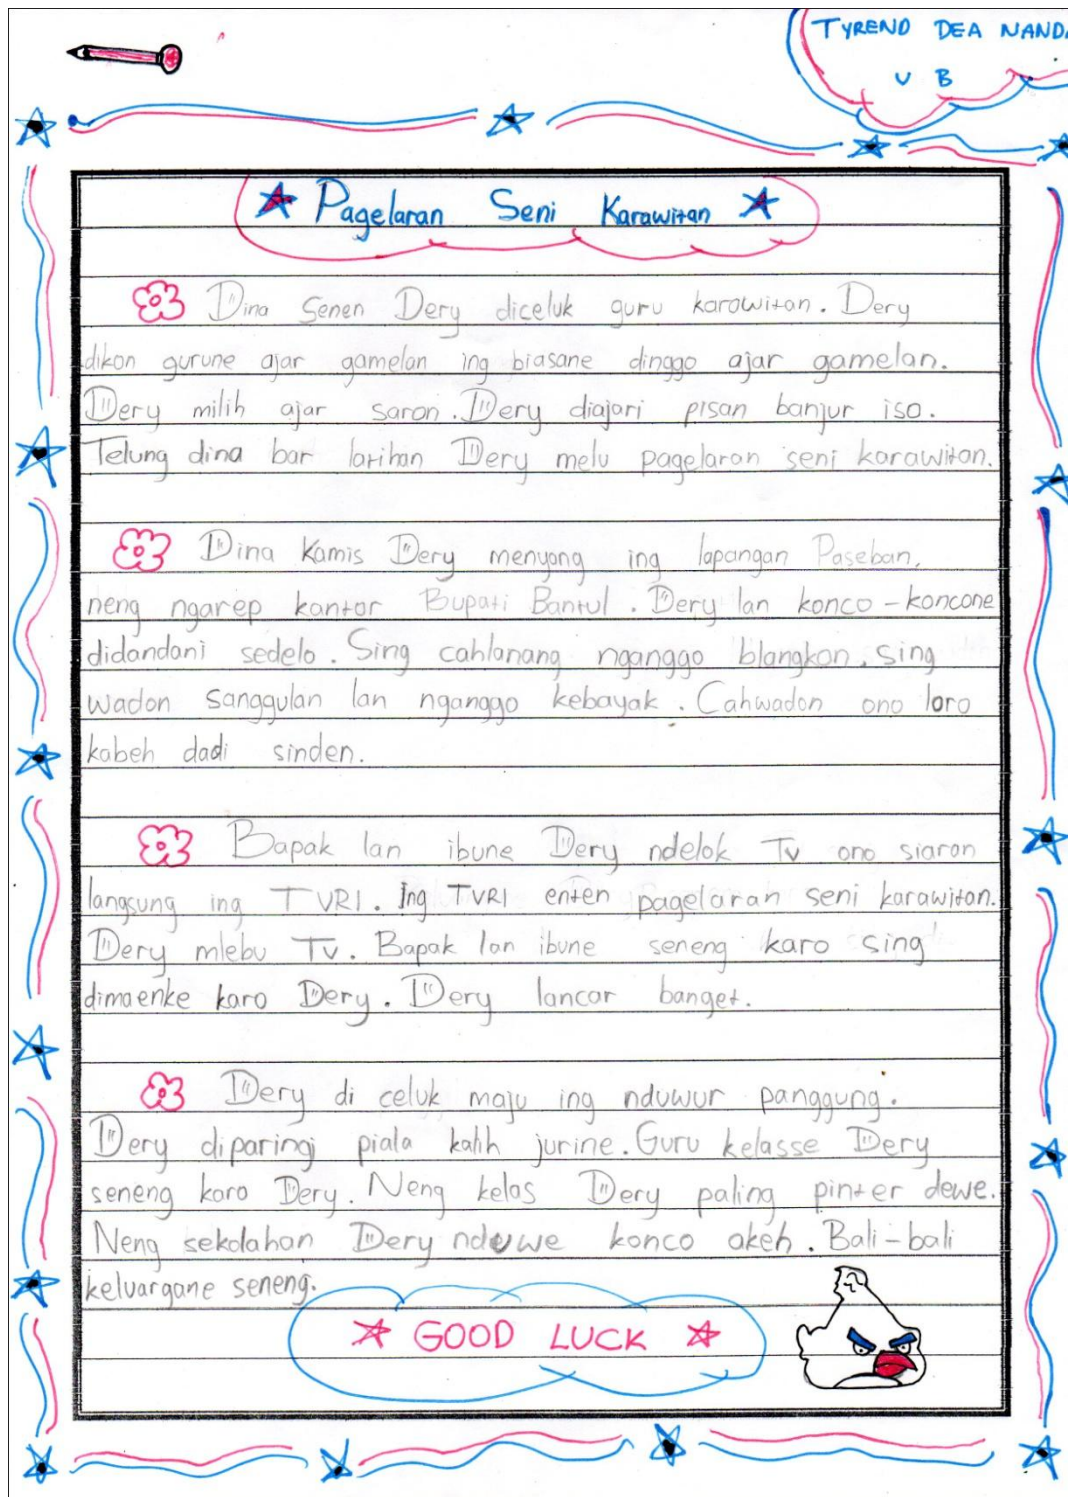 TYREND DEA NANDA
V B
Pagelaran Seni Karawitan
Dina Senen Dery diceluk guru karawitan. Dery
dikon gurune ajar gamelan ing biasane dinggo ajar gamelan.
Dery milih ajar saron. Dery diajari pisan banjur iso.
Telung dina bar latihan Dery melu pagelaran seni karawitan.
Dina Kamis Dery menyang ing lapangan Paseban,
neng ngarep kantor Bupati Bantul. Dery lan konco-koncone
didandani sedelo. Sing cahlanang nganggo blangkon, sing
wadon sanggulan lan nganggo kebayak. Cahwadon ono loro
kabeh dadi sinden.
Bapak lan ibune Dery ndelok Tv ono siaran
langsung ing TVRI. Ing TVRI enten pagelaran seni karawitan.
Dery mlebu Tv. Bapak lan ibune seneng karo sing
dimaenke karo Dery. Dery lancar banget.
Dery di celuk maju ing nduwur panggung.
Dery diparingi piala kalih jurine. Guru kelasse Dery
seneng karo Dery. Neng kelas Dery paling pinter dewe.
Neng sekolahan Dery nduwe konco akeh. Bali-bali
keluargane seneng.
GOOD LUCK